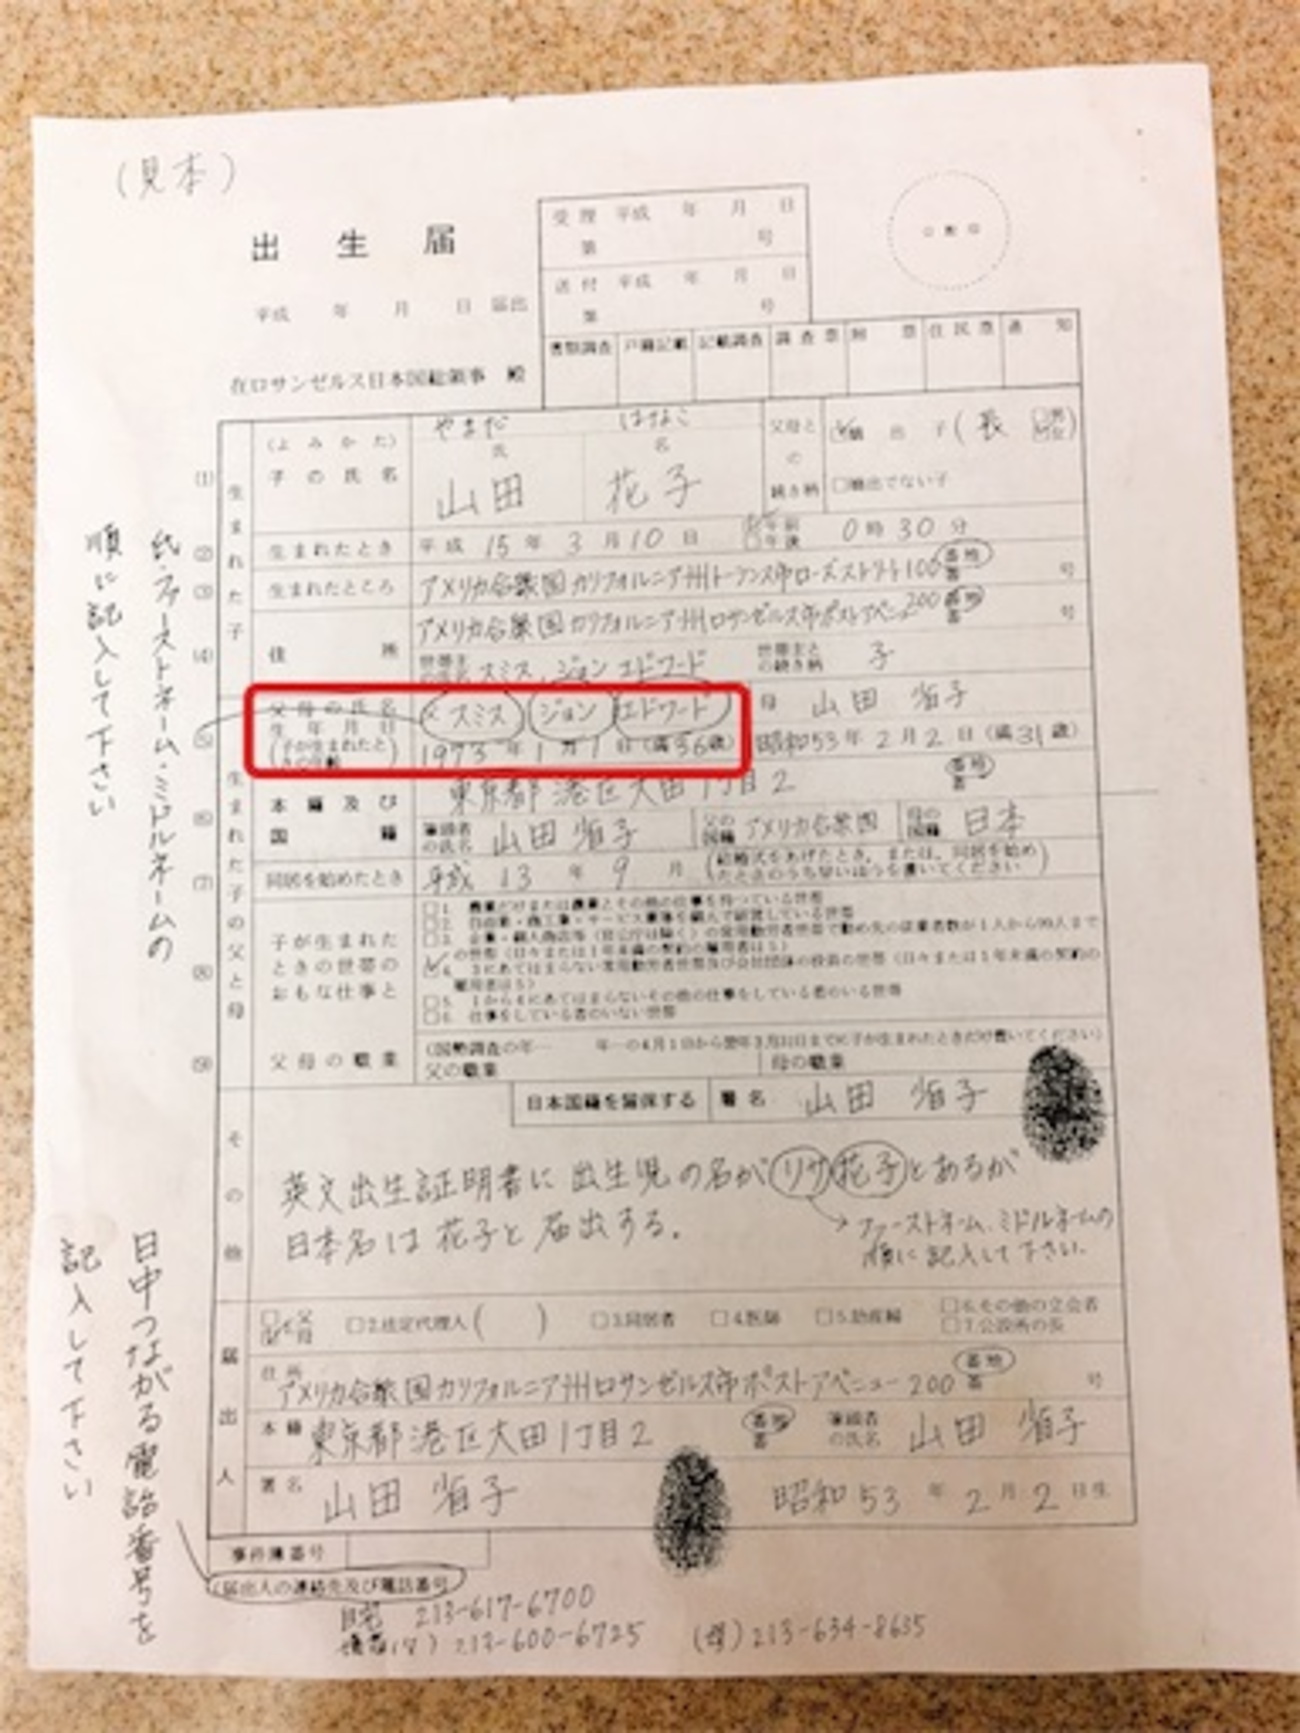 (見本)
出生届
受理 平成 年 月 日
第 号
平成 年 月 日 届出
送付 平成 年 月 日
第 号
書類調査 戸籍記載 記載調査 調査票 附票 住民票 通知
在ロサンゼルス日本国総領事 殿
(1) (よみかた) やまだ はなこ
子の氏名 氏 名
山田 花子
父母との続き柄 嫡出子(長 男 女)
嫡出でない子
(2) 生まれたとき 平成15年3月10日 午前 午後 0時30分
(3) 生まれたところ アメリカ合衆国カリフォルニア州トーランス市ローズストリート100 番地 番 号
(4) 住所 アメリカ合衆国カリフォルニア州ロサンゼルス市ポストアベニュー200 番地 番 号
世帯主 スミス、ジョン エドワード 世帯主との続き柄 子
生まれた子
(5) 父母の氏名 生年月日 (子が生まれたときの年齢)
父 スミス ジョン エドワード 母 山田 省子
1973年1月1日(満36歳) 昭和53年2月2日(満31歳)
(6) 本籍及び国籍 東京都港区大田1丁目2 番地 番
筆頭者の氏名 山田 省子 父の国籍 アメリカ合衆国 母の国籍 日本
(7) 同居を始めたとき 平成13年9月 (結婚式をあげたとき、または、同居を始めたときのうち早いほうを書いてください)
(8) 子が生まれたときの世帯のおもな仕事と
1. 農業だけまたは農業とその他の仕事を持っている世帯
2. 自由業・商工業・サービス業等を個人で経営している世帯
3. 企業・個人商店等(官公庁は除く)の常用勤労者世帯で勤め先の従業者数が1人から99人までの世帯(日々または1年未満の契約の雇用者は5)
4. 3にあてはまらない常用勤労者世帯及び会社団体の役員の世帯(日々または1年未満の契約の雇用者は5)
5. 1から4にあてはまらないその他の仕事をしている者のいる世帯
6. 仕事をしている者のいない世帯
(9) 父母の職業 (国勢調査の年… 年…の4月1日から翌年3月31日までに子が生まれたときだけ書いてください)
父の職業 母の職業
生まれた子の父と母
日本国籍を留保する 署名 山田 省子
その他
英文出生証明書に出生児の名がリサ花子とあるが
日本名は花子と届出する。
ファーストネーム、ミドルネームの
順に記入して下さい。
届出人
1. 父 母 2.法定代理人( ) 3.同居者 4.医師 5.助産婦 6.その他の立会者
7.公設所の長
住所 アメリカ合衆国カリフォルニア州ロサンゼルス市ポストアベニュー200 番地 番 号
本籍 東京都港区大田1丁目2 番地 番 筆頭者の氏名 山田 省子
署名 山田 省子 昭和53年2月2日生
事件簿番号
(届出人の連絡先及び電話番号
自宅 213-617-6700
213-600-6725 (母)213-634-8635
氏・ファーストネーム・ミドルネームの
順に記入して下さい
日中つながる電話番号を
記入して下さい